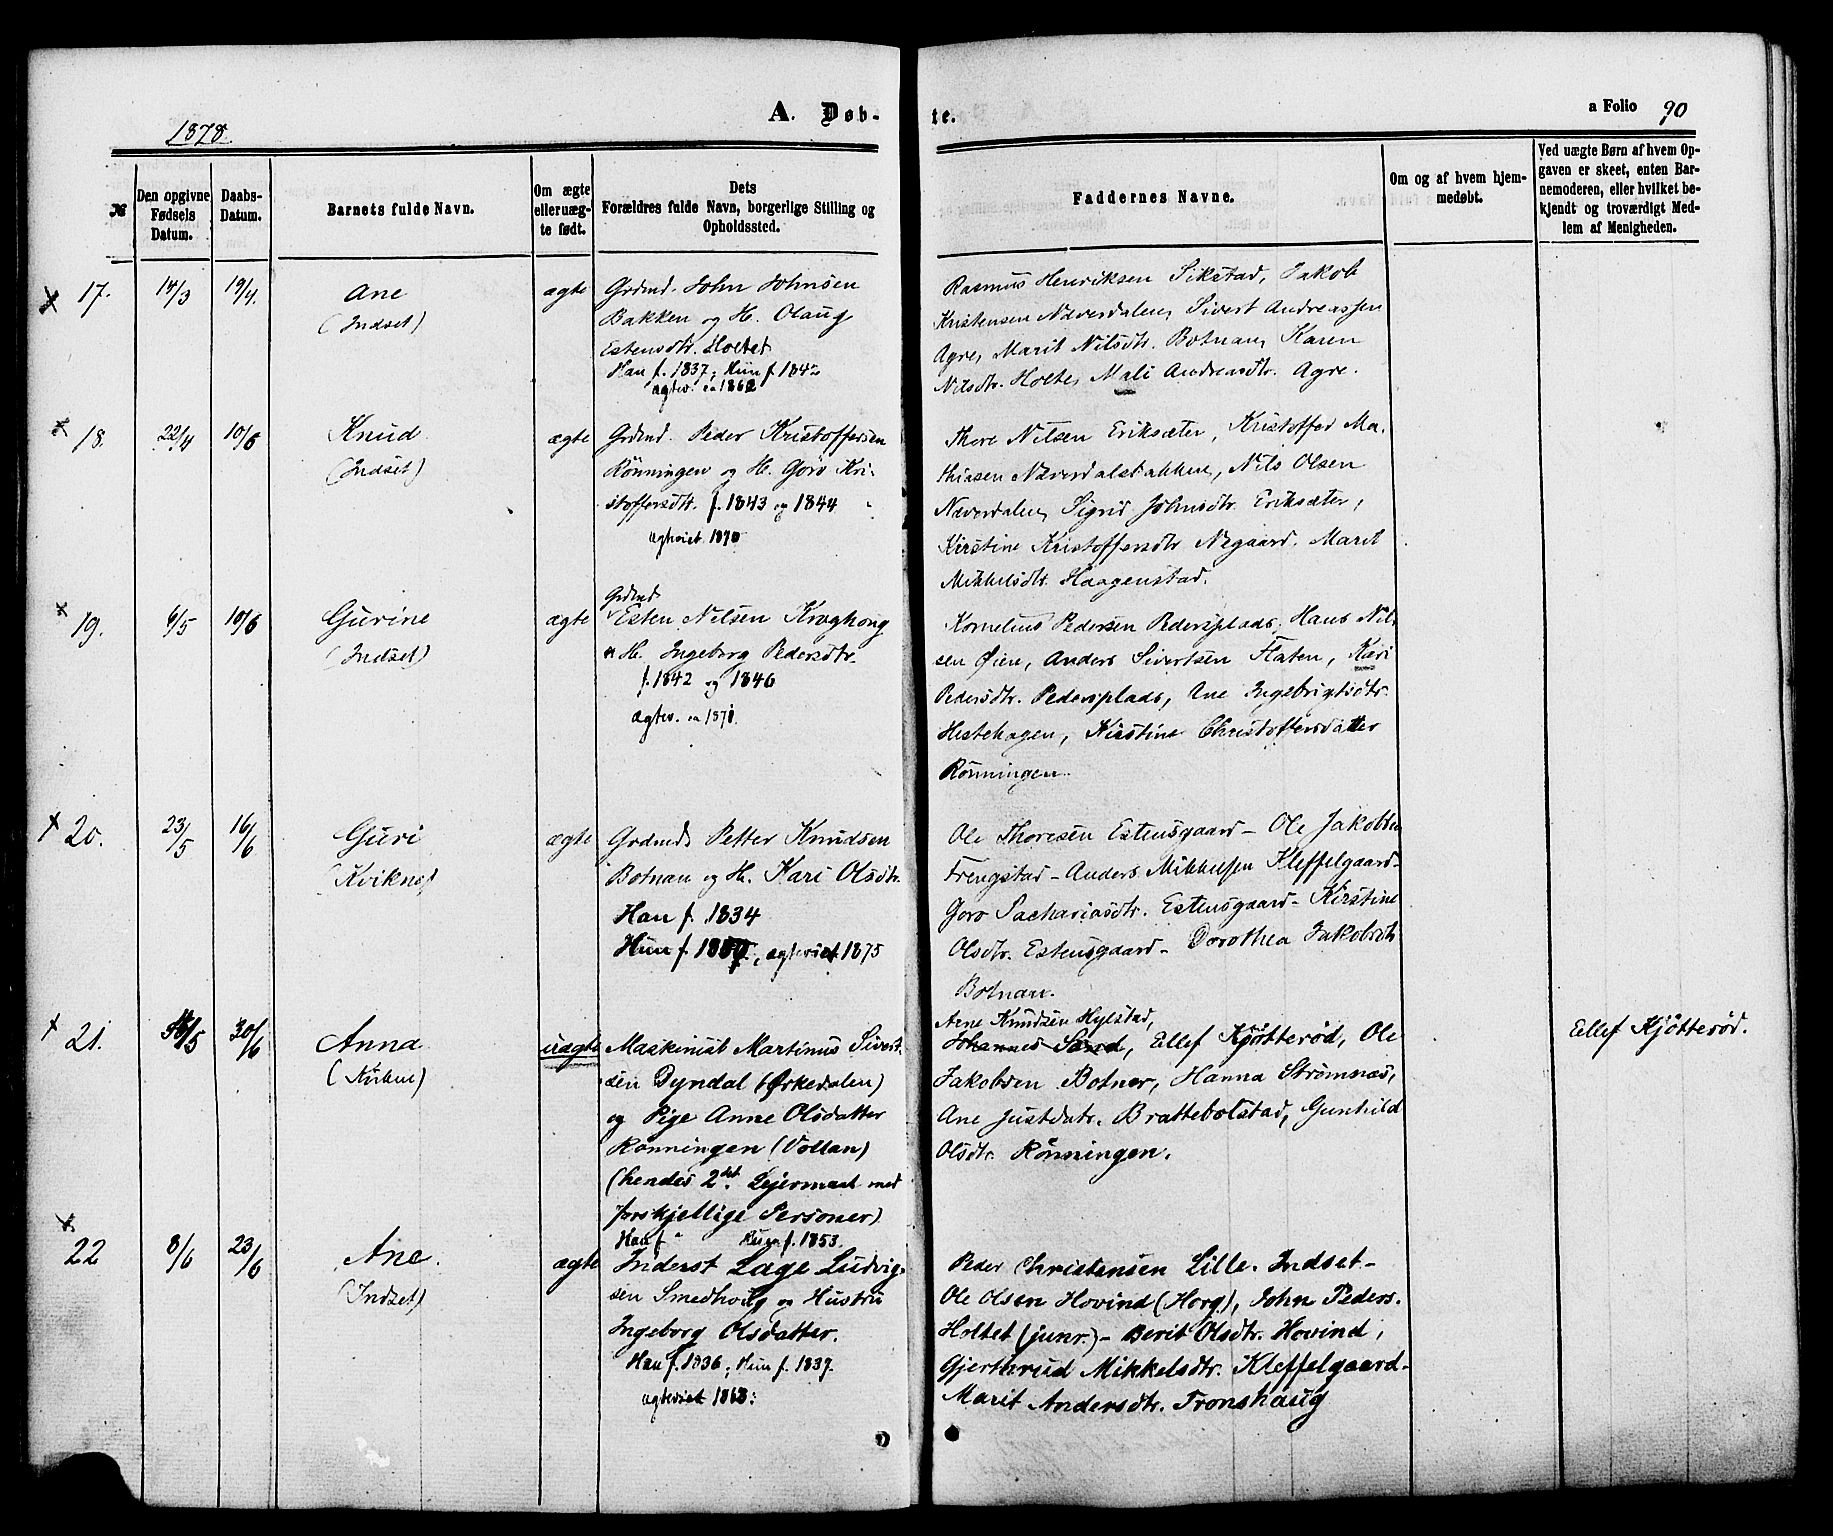 1878.
A. Døb-
№
Den opgivne Fødsels Datum.
Daabs-Datum.
Barnets fulde Navn.
Om ægte eller uæg-te født.
Dets
Forældres fulde Navn, borgerlige Stilling og
Opholdssted.
17.
14/3
19/4.
Ane
(Indset)
ægte
Grdmd. John Johnsen
Bakken og H. Olaug
Estensdtr. Holtet
Han f. 1837; Hun f. 1842
ægtev. ca 1862
18.
22/4
10/6
Knud
(Indset)
ægte
Grdmd. Peder Kristoffersen
Rönningen og H. Goro Kri-
stoffersdtr. f. 1843 og 1844
ægteviet 1870
19.
6/5
10/6
Gurine
(Indset)
ægte
Grdmd
Esten Nilsen Kroghong
H. Ingeborg Pedersdtr.
f. 1842 og 1846
ægtev. ca 1871.
20.
23/5
16/6
Guri
(Kvikne)
ægte
Grdmd Petter Knudsen
Botnan og H. Kari Olsdtr.
Han f. 1834
Hun f. , ægteviet 1875
21.
30/6
Anna
uægte
Maskinist Martinus Sivert-
sen Dyndal (Ørkedalen)
og Pige Anne Olsdatter
Rönningen (Vollan)
(hendes 2det Lejermaal med
forskjellige Personer)
Han f. " Hun f. 1853.
22
8/6
23/6
Ane.
(Indset)
ægte
Inderst Lage Ludvig-
sen Smedhaug og Hustru
Ingeborg Olsdatter.
Han f. 1836; Hun f. 1837.
ægteviet 1863:
te.
a Folio 90
Faddernes Navne.
Om og af hvem hjem-
medøbt.
Ved uægte Børn af hvem Op-
gaven er skeet, enten Bar-
nemoderen, eller hvilket be-
kjendt og troværdigt Med-
lem af Menigheden.
Rasmus Henriksen Sikstad, Jakob
Kristensen Næverdalen, Sivert Andreassen
Agre, Marit Nilsdtr. Botnan, Karen
Nilsdtr. Holte, Mali Andreasdtr. Agre.
Thore Nilsen Eriksæter, Kristoffer Ma-
thiasen Næverdalsbakken, Nils Olsen
Næverdalen, Sigrid Johnsdtr. Eriksæter,
Kirstine Kristoffersdtr Nygaard. Marit
Mikkelsdtr. Haagenstad.
Kornelius Pedersen Pedersplads, Hans Nil-
sen Øien, Anders Sivertsen Flaten, Kari
Pedersdtr. Pedersplads, Ane Ingebrigtsdtr.
Hestehagen, Kirstine Christoffersdatter
Rönningen.
Ole Thoresen Estensgaard - Ole Jakobsen
Frengstad - Anders Mikkelsen Kleffelgaard-
Goro Sachariasdtr. Estensgaard - Kirstine
Olsdtr. Estensgaard - Dorothea Jakobsdtr
Botnan.
Arne Knudsen Hylstad,
Johannes Sand, Ellef Kjötteröd, Ole
Jakobsen Botner, Hanna Strømnæs,
Ane Justdatr. Brattebolstad, Gunhild
Olsdtr. Rönningen.
Ellef Kjötteröd.
Peder Christensen Lille-Indset -
Ole Olsen Hovind (Horg), John Peders.
Holtet (junr.) - Berit Olsdtr. Hovind,
Gjertrud Mikkelsdtr. Kleffelgaard-
Marit Andersdtr. Tronshaug